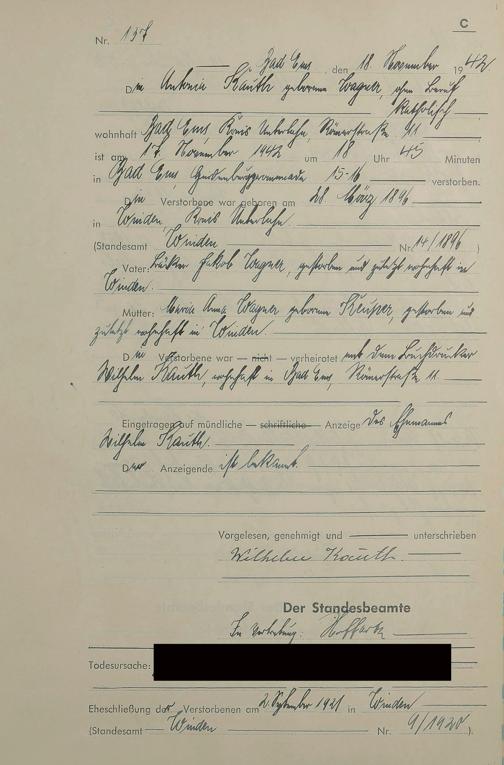 C
Nr. 197
Bad Ems, den 18. November 1942
Die Antonia Kauth geborene Wagner, ohne Beruf
katholisch
wohnhaft Bad Ems, Kreis Unterlahn, Römerstraße 91
ist am 17. November 1942 um 18 Uhr 45 Minuten
in Bad Ems, 15-16 verstorben.
Die Verstorbene war geboren am 28. März 1896
in Winden, Kreis Unterlahn
(Standesamt Winden Nr. 14/1896)
Vater: Jakob Wagner, gestorben und zuletzt wohnhaft in
Winden.
Mutter: Maria Anna Wagner geborene Keuper, gestorben und
zuletzt wohnhaft in Winden
Die Verstorbene war — nicht — verheiratet mit dem Buchdrucker
Wilhelm Kauth, wohnhaft in Bad Ems, Römerstraße 11.
Eingetragen auf mündliche — schriftliche — Anzeige des Ehemannes
Wilhelm Kauth.
Der Anzeigende ist bekannt.
Vorgelesen, genehmigt und unterschrieben
Wilhelm Kauth.
Der Standesbeamte
In Vertretung:
Todesursache:
Eheschließung der Verstorbenen am 2. September 1921 in Winden
(Standesamt Winden Nr. 9/1920).